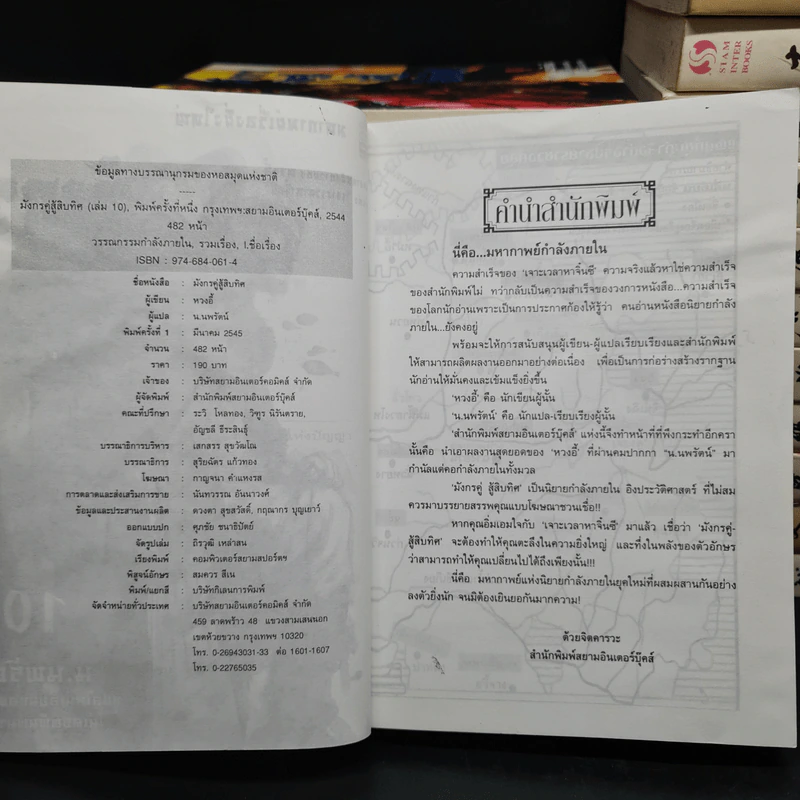 ข้อมูลทางบรรณานุกรมของหอสมุดแห่งชาติ
มังกรคู่สู้สิบทิศ (เล่ม 10), พิมพ์ครั้งที่หนึ่ง กรุงเทพฯ:สยามอินเตอร์บุ๊คส์, 2544
482 หน้า
วรรณกรรมกำลังภายใน, รวมเรื่อง, l.ชื่อเรื่อง
ISBN : 974-684-061-4
ชื่อหนังสือ : มังกรคู่สู้สิบทิศ
ผู้เขียน : หวงอี้
ผู้แปล : น.นพรัตน์
พิมพ์ครั้งที่ 1 : มีนาคม 2545
จำนวน : 482 หน้า
ราคา : 190 บาท
เจ้าของ : บริษัทสยามอินเตอร์คอมิคส์ จำกัด
ผู้จัดพิมพ์ : สำนักพิมพ์สยามอินเตอร์บุ๊คส์
คณะที่ปรึกษา : ระวิ โหลทอง, วิฑูร นิรันตราย,
อัญชลี ธีระสินธุ์
บรรณาธิการบริหาร : เสกสรร สุขวัฒโน
บรรณาธิการ : สุริยฉัตร แก้วทอง
โฆษณา : กาญจนา คำแหงรส
การตลาดและส่งเสริมการขาย : นันทวรรณ อันนาวงค์
ข้อมูลและประสานงานผลิต : ดวงตา สุขสวัสดิ์, กฤณากร บุญเยาว์
ออกแบบปก : ศุภชัย ชนาธิปัตย์
จัดรูปเล่ม : ถิรวุฒิ เหล่าสน
เรียงพิมพ์ : คอมพิวเตอร์สยามสปอร์ตฯ
พิสูจน์อักษร : สมควร สีเน
พิมพ์/แยกสี : บริษัทกิเลนการพิมพ์
จัดจำหน่ายทั่วประเทศ : บริษัทสยามอินเตอร์คอมิคส์ จำกัด
459 ลาดพร้าว 48 แขวงสามเสนนอก
เขตห้วยขวาง กรุงเทพฯ 10320
โทร. 0-26943031-33 ต่อ 1601-1607
โทร. 0-22765035
คำนำสำนักพิมพ์
นี่คือ...มหากาพย์กำลังภายใน
ความสำเร็จของ 'เจาะเวลาหาจิ๋นซี' ความจริงแล้วหาใช่ความสำเร็จ
ของสำนักพิมพ์ไม่ ทว่ากลับเป็นความสำเร็จของวงการหนังสือ...ความสำเร็จ
ของโลกนักอ่านเพราะเป็นการประกาศก้องให้รู้ว่า คนอ่านหนังสือนิยายกำลัง
ภายใน...ยังคงอยู่
พร้อมจะให้การสนับสนุนผู้เขียน-ผู้แปลเรียบเรียงและสำนักพิมพ์
ให้สามารถผลิตผลงานออกมาอย่างต่อเนื่อง เพื่อเป็นการก่อร่างสร้างรากฐาน
นักอ่านให้มั่นคงและเข้มแข็งยิ่งขึ้น
'หวงอี้' คือ นักเขียนผู้นั้น
'น.นพรัตน์' คือ นักแปล-เรียบเรียงผู้นั้น
'สำนักพิมพ์สยามอินเตอร์บุ๊คส์' แห่งนี้จึงทำหน้าที่ที่พึงกระทำอีกครา
นั้นคือ นำเอาผลงานสุดยอดของ 'หวงอี้' ที่ผ่านคมปากกา "น.นพรัตน์" มา
กำนัลแด่คอกำลังภายในทั้งมวล
'มังกรคู่ สู้สิบทิศ' เป็นนิยายกำลังภายใน อิงประวัติศาสตร์ ที่ไม่สม
ควรมาบรรยายสรรพคุณแบบโฆษณาชวนเชื่อ!!
หากคุณอิ่มเอมใจกับ 'เจาะเวลาหาจิ๋นซี' มาแล้ว เชื่อว่า 'มังกรคู่-
สู้สิบทิศ' จะต้องทำให้คุณตะลึงในความยิ่งใหญ่ และทึ่งในพลังของตัวอักษร
ว่าสามารถทำให้คุณเปลี่ยนไปได้ถึงเพียงนั้น!!!
นี่คือ มหากาพย์แห่งนิยายกำลังภายในยุคใหม่ที่ผสมผสานกันอย่าง
ลงตัวยิ่งนัก จนมิต้องเยินยอกันมากความ!
ด้วยจิตคารวะ
สำนักพิมพ์สยามอินเตอร์บุ๊คส์
SIAM
INTER
BOOKS